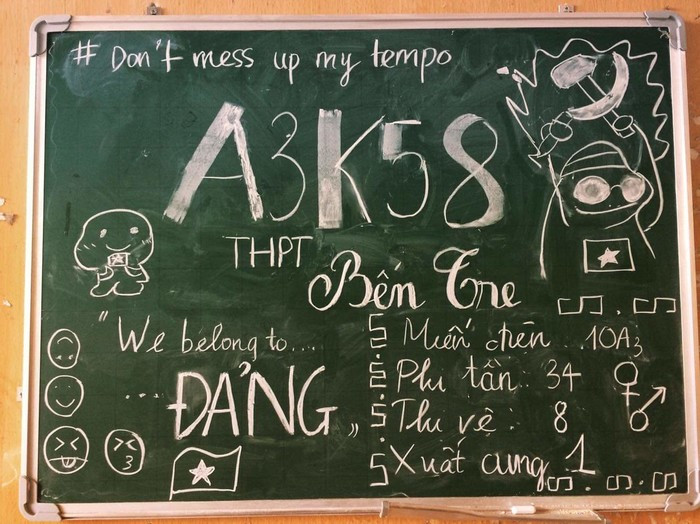 # Don't mess up my tempo
A3K58
THPT
Bến Tre
"We belong to....
... ĐẢNG„
Miến chiên 10A3
Phi tần: 34
Thị vệ: 8
Xuất cung 1